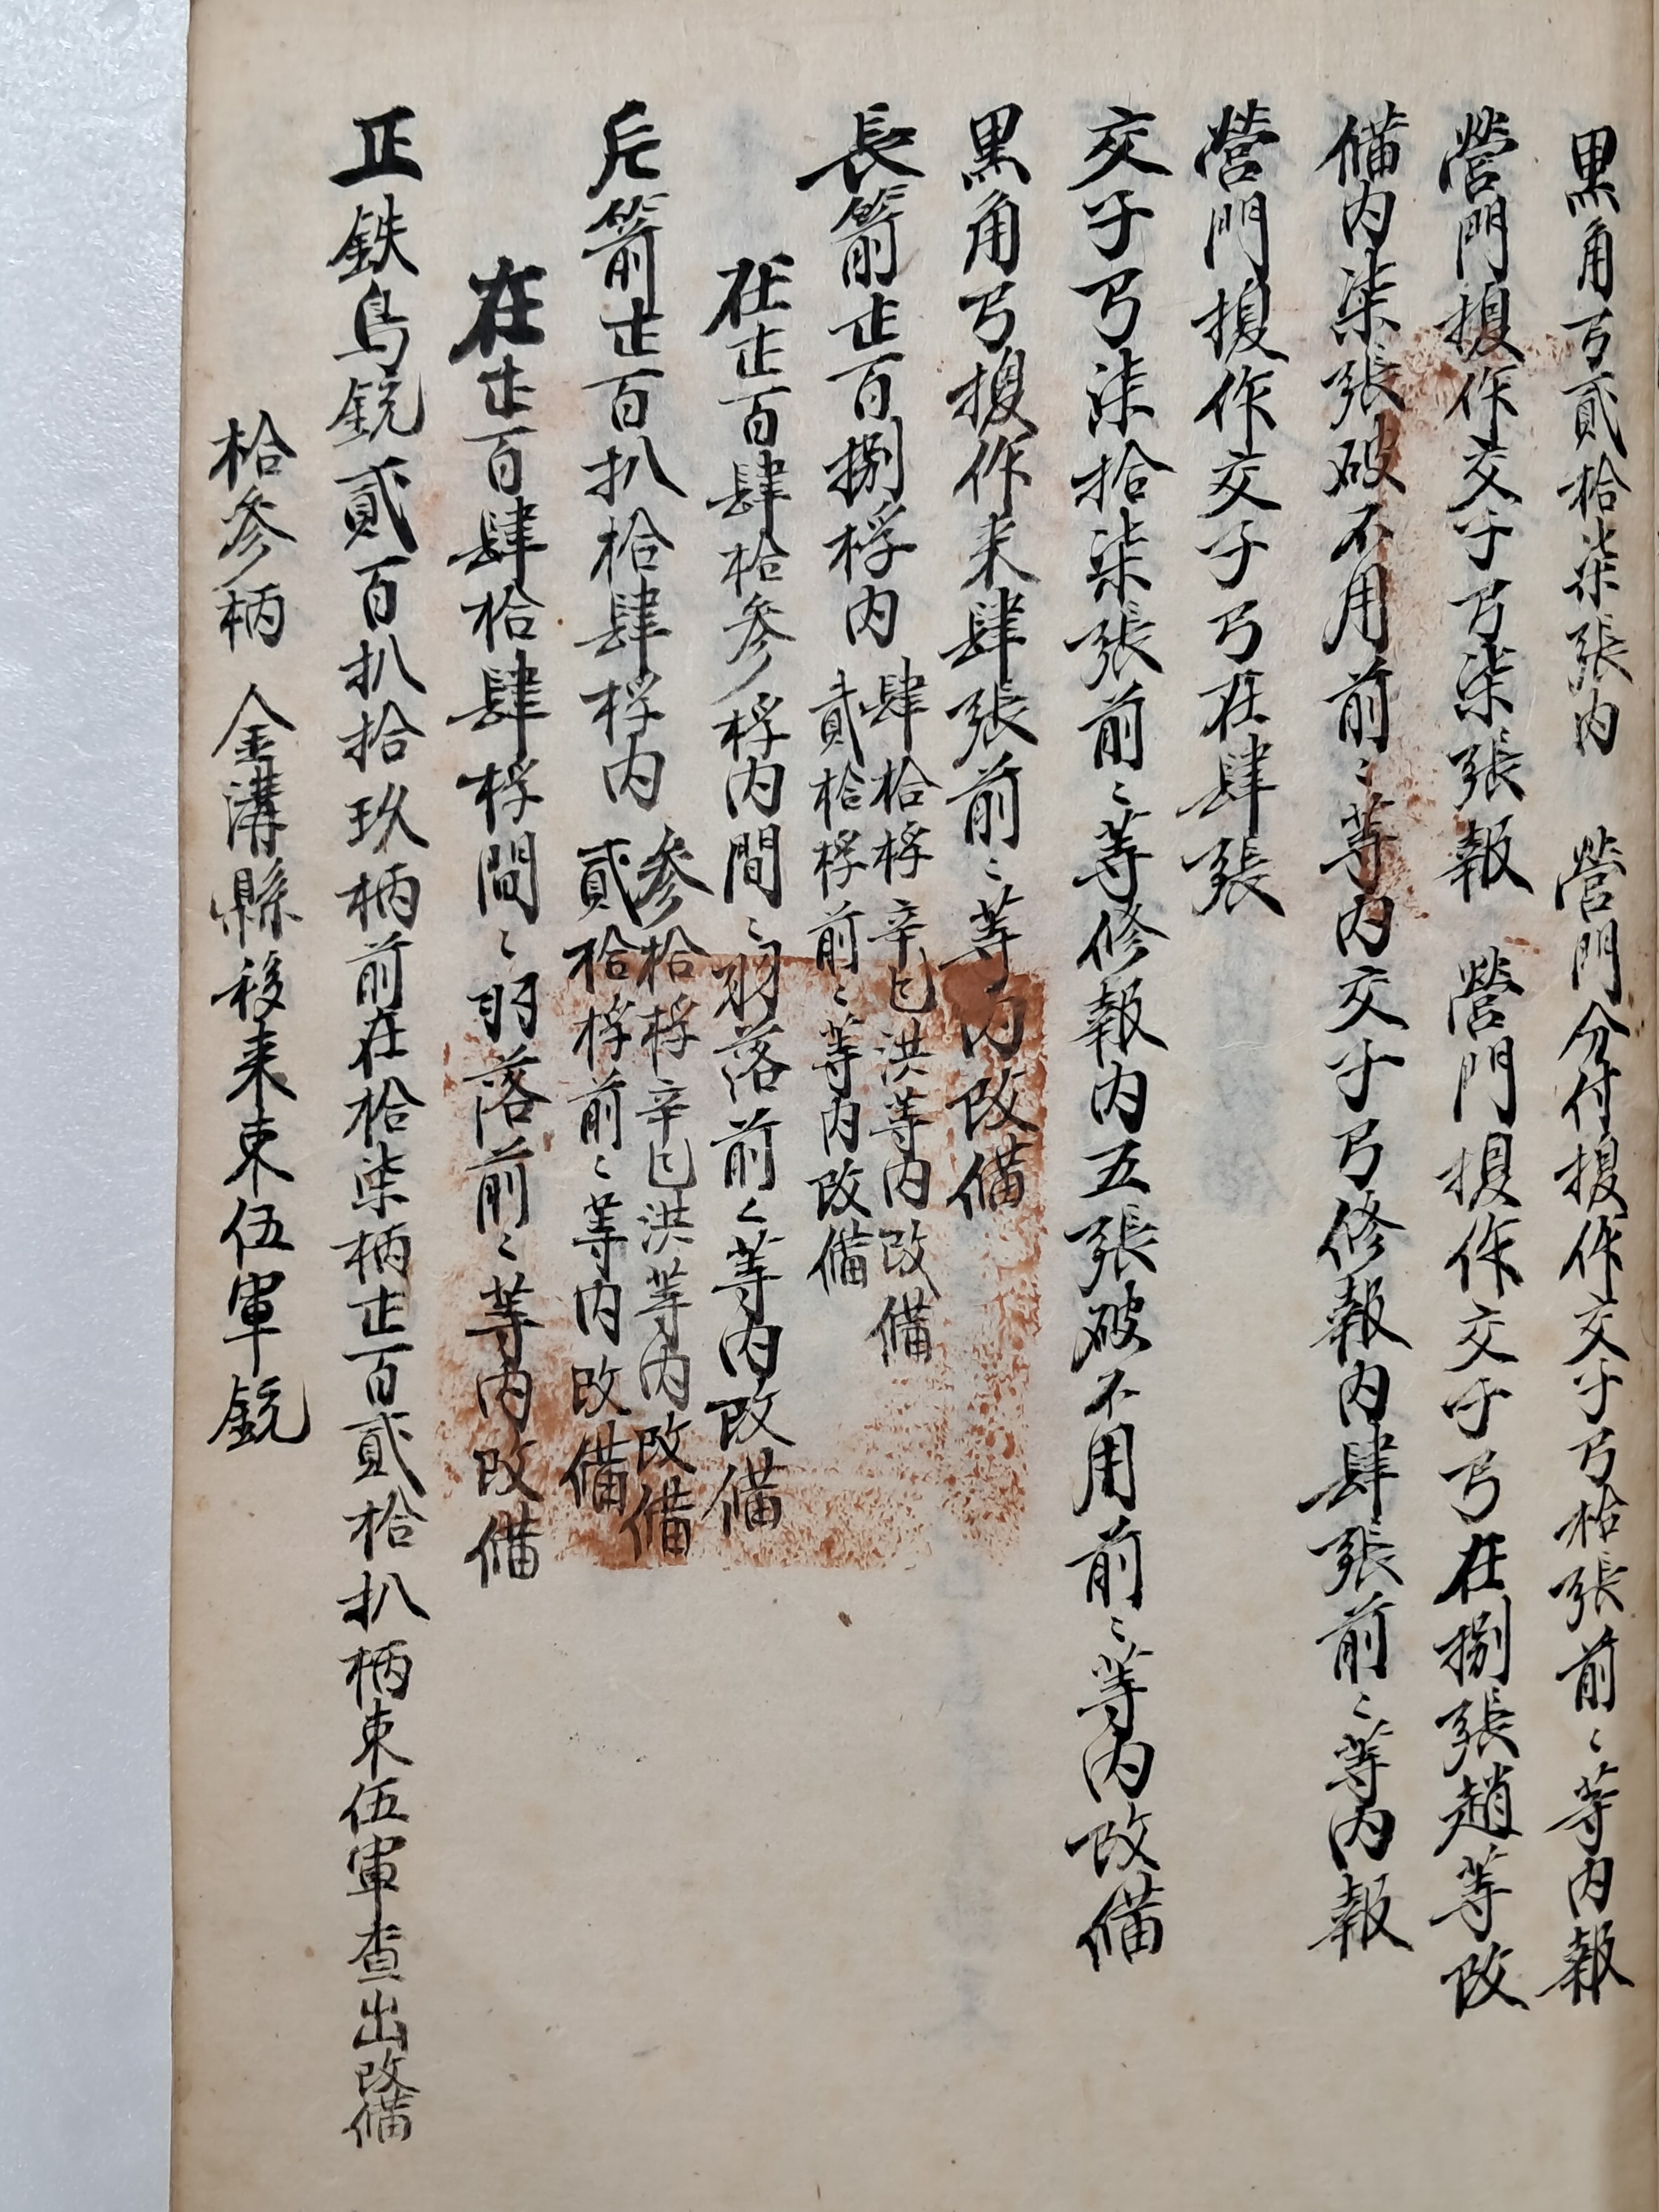 黒角弓貳拾柒張內 營門分付換作交子弓拾張前〻等內報
營門換作交子弓柒張報 營門換作交子弓在捌張趙等改
備內柒張破不用前〻等內交子弓修報內肆張前〻等內報
營門換作交子弓在肆張
交子弓柒拾柒張前〻等修報內五張破不用前〻等內改備
黒角弓換作来肆張前〻等內改備
長箭壱百捌桴內 肆拾桴辛巳洪等內改備
貳拾桴前〻等內改備
在壱百肆拾參桴內間〻羽落前〻等內改備
片箭壱百扒拾肆桴內 參拾桴辛巳洪等內改備
貳拾桴前〻等內改備
在壱百肆拾肆桴間〻羽落前〻等內改備
正鉄鳥銃貳百扒拾玖柄前在拾柒柄壱百貳拾扒柄束伍軍查出改備
拾參柄 金溝縣移来束伍軍銃